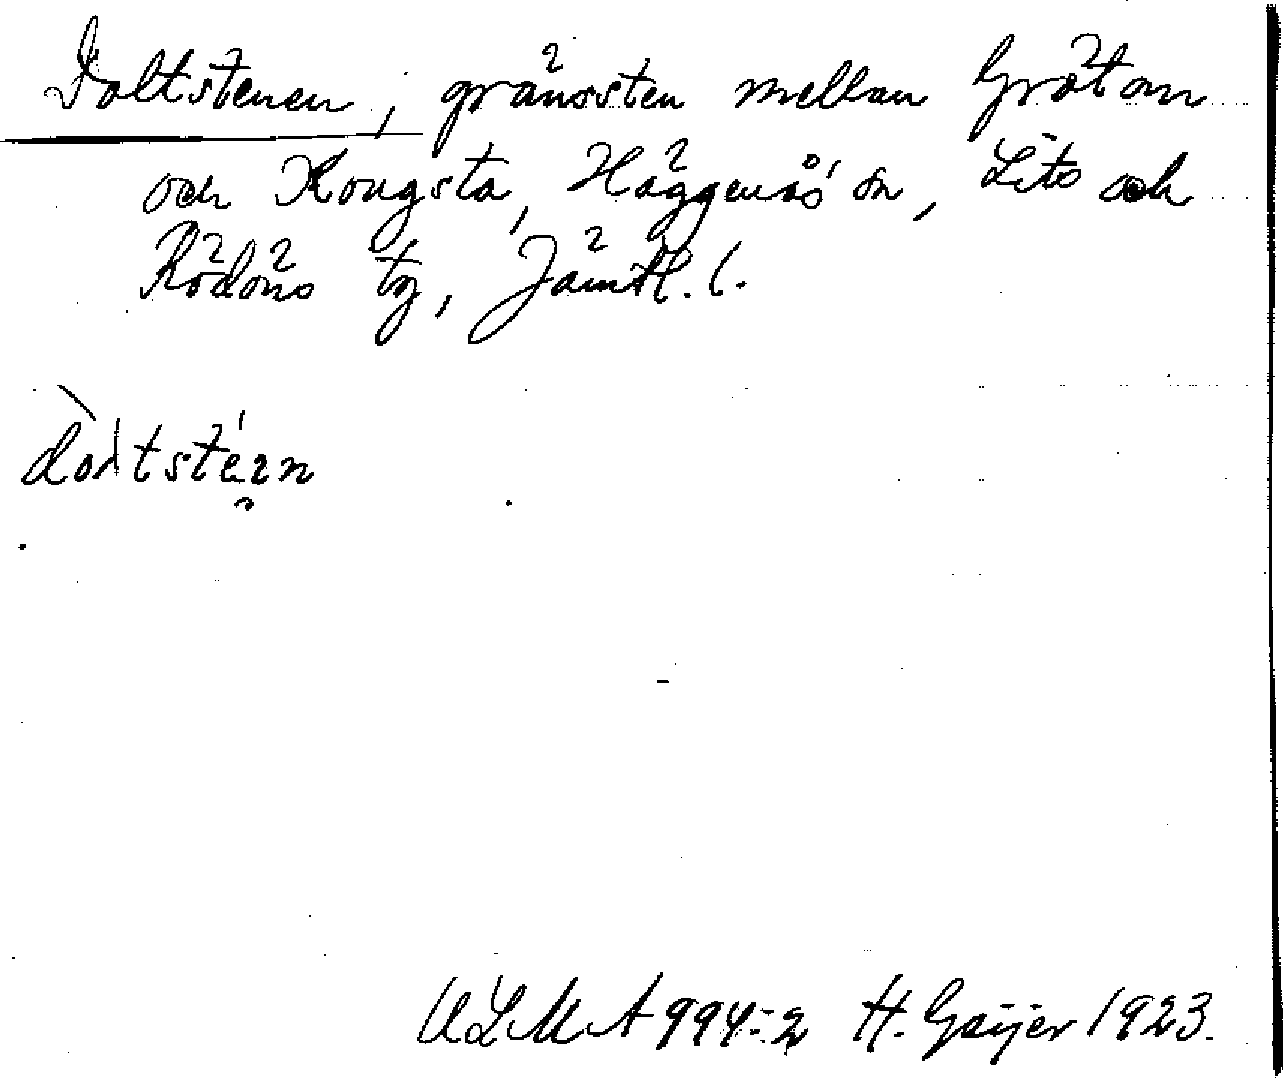 Doltstenen, gränssten mellan Gråtom
och Kougsta, Häggenås sn, Lits och
Rödöns tg, Jämtl. l.
ULMA 994:2 H. Geijer 1923.